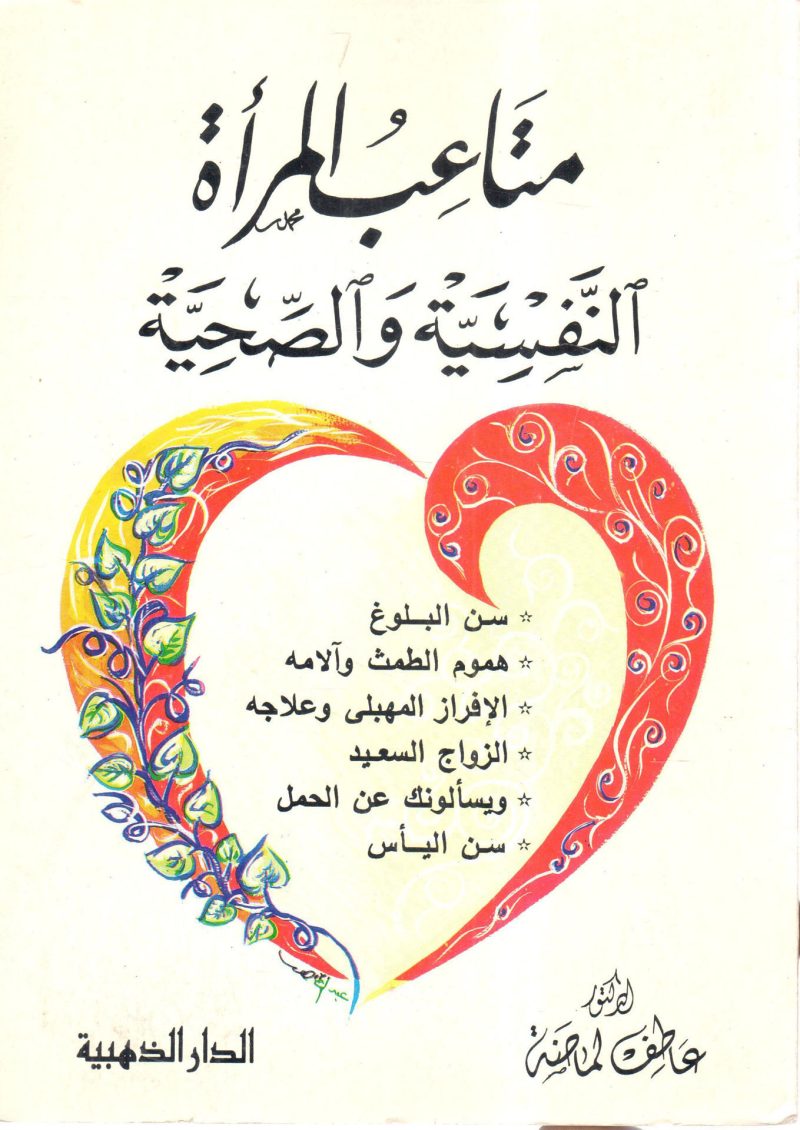 متَاعِبُ المرأة
محمد
ٱلنَّفْسِيَّة وَٱلصِّحِيَّة
☆ سن البلوغ
☆ هموم الطمث وآلامه
☆ الإفراز المهبلى وعلاجه
☆ الزواج السعيد
☆ ويسألونك عن الحمل
☆ سن اليأس
الدكتور
عَاطِف لماضَة
الدار الذهبية